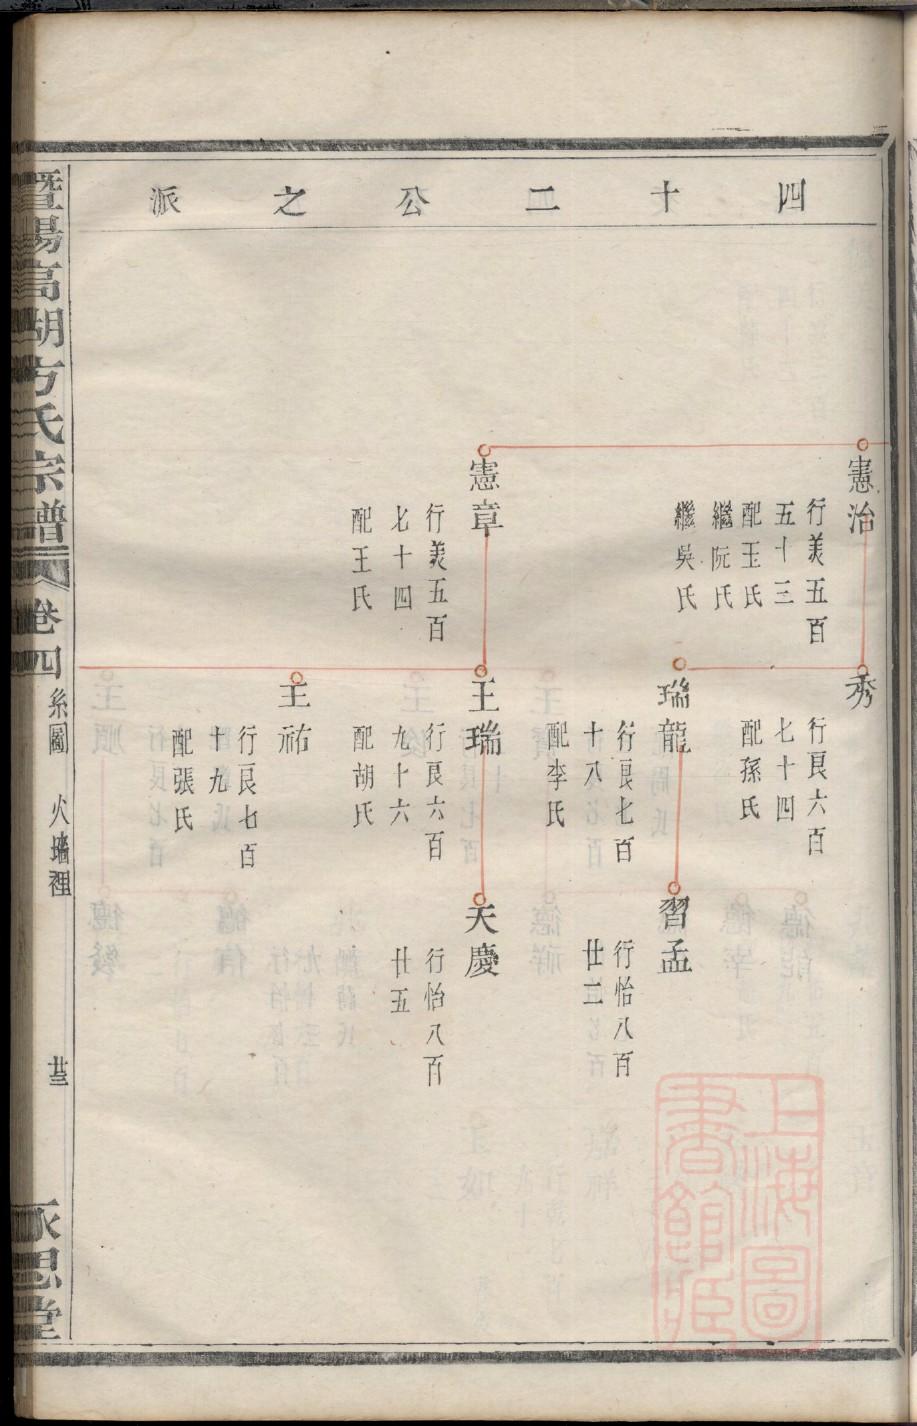 四十二公之派
憲治
行美五百
五十三
配王氏
繼阮氏
繼吳氏
憲章
行美五百
七十四
配王氏
秀
行艮六百
七十四
配孫氏
瑞龍
行艮七百
十八
配李氏
王瑞
行艮六百
九十六
配胡氏
王祐
行艮七百
十九
配張氏
習孟
行怡八百
廿二
天慶
行怡八百
廿五
暨陽高湖方氏宗譜
卷四
系圖
火墻裡
廿三
永思堂
上海圖
書館藏